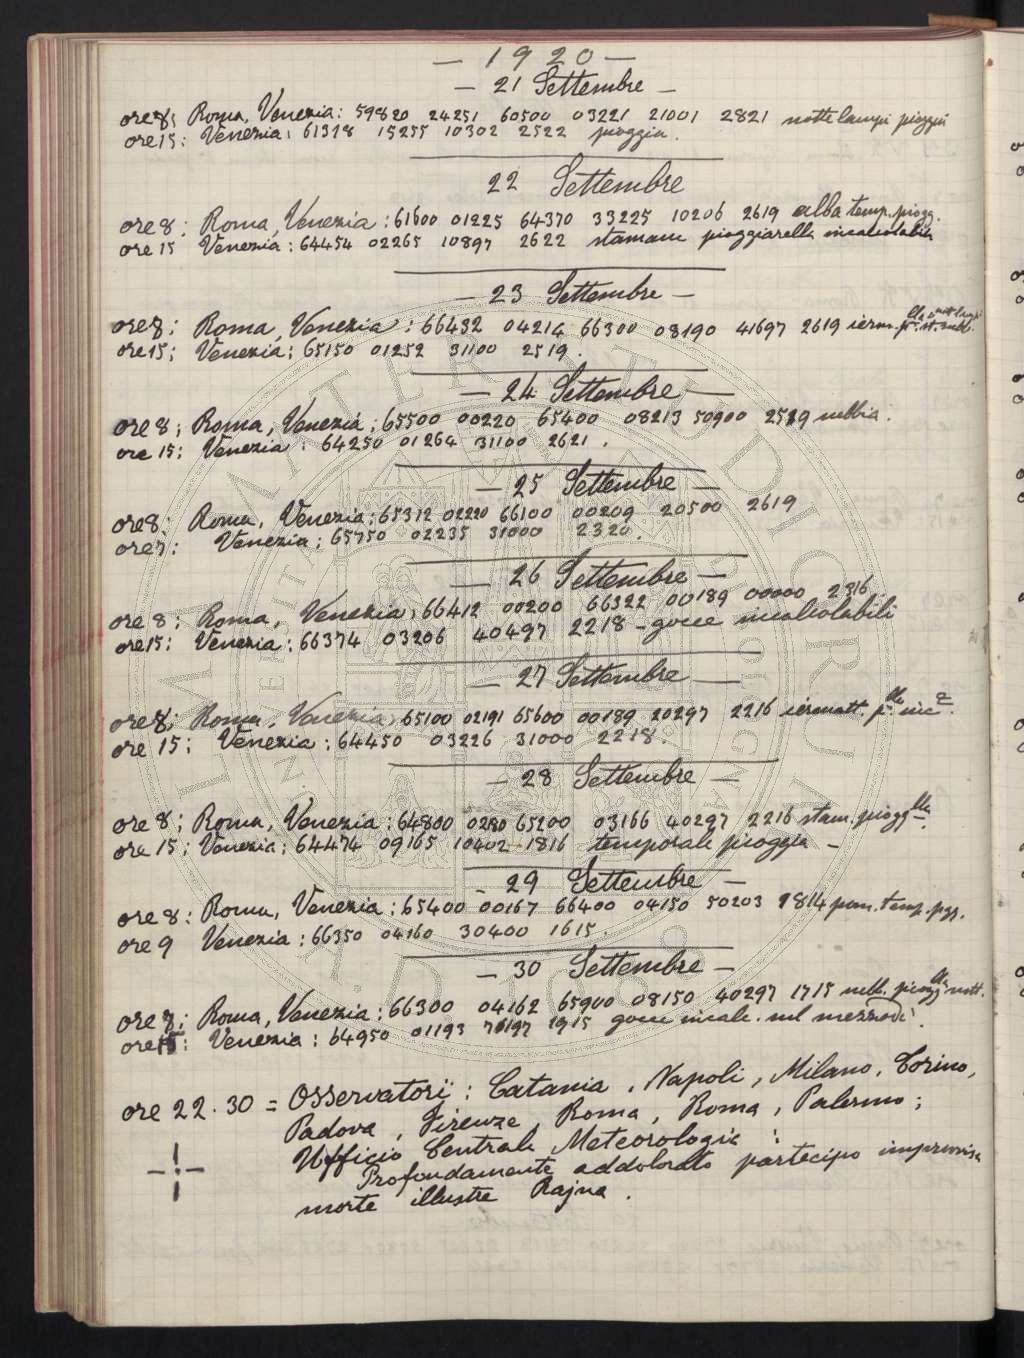 — 1920 —
— 21 Settembre —
ore 8; Roma, Venezia: 59820 24251 60500 03221 21001 2821 notte lampi pioggia
ore 15: Venezia: 61318 15255 10302 2522 pioggia.
22 Settembre
ore 8: Roma, Venezia: 61600 01225 64370 33225 10206 2619 alba temp. piogg.
ore 15 Venezia: 64454 02265 10897 2622 stamane pioggiarella incalcolabile
— 23 Settembre —
ore 8; Roma, Venezia: 66432 04214 66300 08190 41697 2619
ore 15; Venezia; 65150 01252 31100 2519.
— 24 Settembre —
ore 8; Roma, Venezia; 65500 00220 65400 08213 50900 2519 nebbia.
ore 15; Venezia: 64250 01264 31100 2621.
— 25 Settembre —
ore 8; Roma, Venezia; 65312 02220 66100 00209 20500 2619
ore 7; Venezia; 65750 02235 31000 2320.
— 26 Settembre —
ore 8; Roma, Venezia; 66412 00200 66322 00189 00000 2316
ore 15; Venezia; 66374 03206 40497 2218 — gocce incalcolabili
— 27 Settembre —
ore 8; Roma, Venezia; 65100 02191 65600 00189 20297 2216
ore 15; Venezia; 64450 03226 31000 2218.
— 28 Settembre —
ore 8; Roma, Venezia; 64800 0280 65200 03166 40297 2216 stam. piogglla.
ore 15; Venezia; 64474 09165 10402 1816 temporale pioggia —
— 29 Settembre —
ore 8: Roma, Venezia; 65400 00167 66400 04150 50203 1814 pom. temp. pgg.
ore 9 Venezia: 66350 04160 30400 1615.
— 30 Settembre —
ore 8; Roma, Venezia: 66300 04162 65900 08150 40297 1715
ore 15: Venezia: 64950 01193 1915 gocce incalc. nel mezzodì.
ore 22.30 = Osservatorii: Catania, Napoli, Milano, Torino,
Padova, Firenze, Roma, Roma, Palermo;
Ufficio Centrale Meteorologic:
Profondamente addolorato partecipo improvvisa
morte illustre Rajna.
ALMA MATER STUDIORUM
A.D. 1088